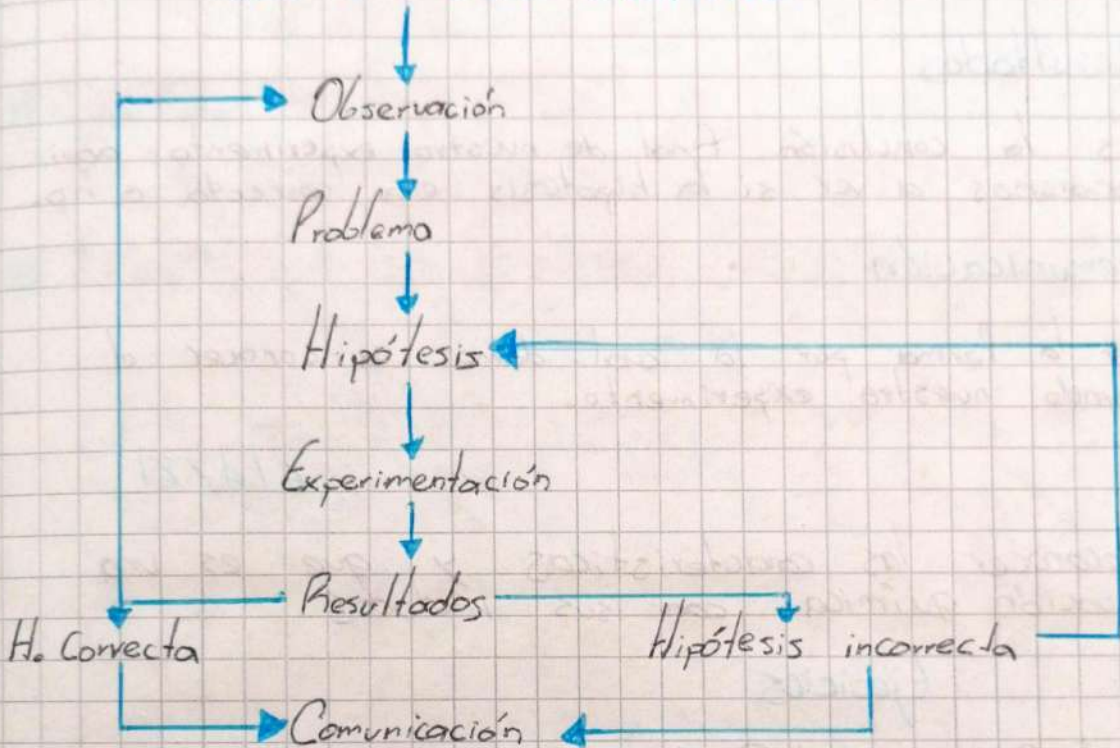 Observación
Problema
Hipótesis
Experimentación
Resultados
H. Correcta
Hipótesis incorrecta
Comunicación